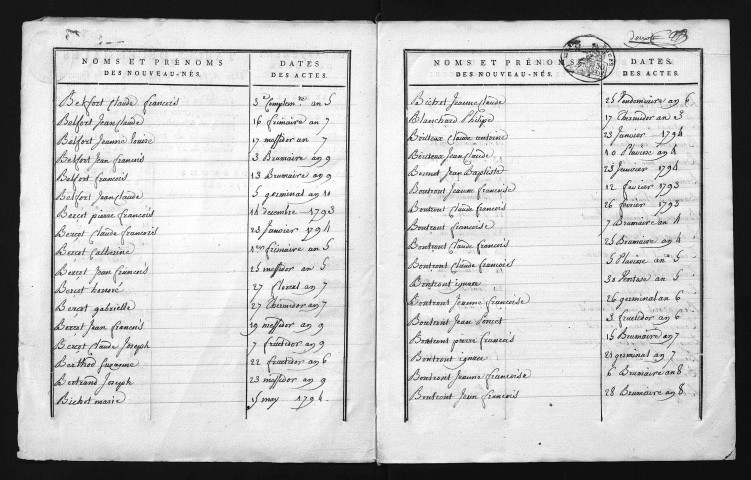 NOMS ET PRÉNOMS DATES
DES NOUVEAU-NÉS. DES ACTES.
Belfort Claude francois 3e Complem.re an 5
Belfort Jean Claude 16 frimaire an 7
Belfort Jeanne Louise 17 messidor an 7
Belfort Jean francois 3 Brumaire an 9
Belfort francois 13 Brumaire an 9
Belfort Jean Claude 5 germinal an 11
Bercot pierre francois 14 decembre 1793
Bercot Claude francois 23 Janvier 1794
Bercot Catherine 1er frimaire an 5
Bercot Jean francois 25 messidor an 5
Bercot honoré 27 floreal an 7
Bercot gabrielle 27 thermidor an 7
Bercot Jean francois 19 messidor an 9
Bercot Claude Joseph 7 fructidor an 9
Berthod 22 fructidor an 6
Bertrand Joseph 23 messidor an 9
Bichet marie 15 may 1794
NOMS ET PRÉNOMS DATES.
DES NOUVEAU-NÉS. DES ACTES.
Bichet Jeanne Claude 25 Vendemiaire an 6
Blanchard Philipe 17 thermidor an 3
Claude antoine 23 Janvier 1794
Jean Claude 10 Pluviose an 4
Jean Baptiste 23 Janvier 1794
Bontront Jeanne francoise 12 fevrier 1793
Bontront Claude francois 26 fevrier 1793
Bontront francoise 7 Brumaire an 4
Bontront Claude francois 25 Brumaire an 4
Bontront Claude francois 5 Pluviose an 5
Bontront ignace 30 Ventose an 5
Bontront Jeanne francoise 26 germinal an 6
Bontront Jean 3 fructidor an 6
Bontront pierre francois 15 Brumaire an 7
Bontront ignace 21 germinal an 7
Bontront Jeanne francoise 6 Brumaire an 8
Bontront Jean francois 28 Brumaire an 8